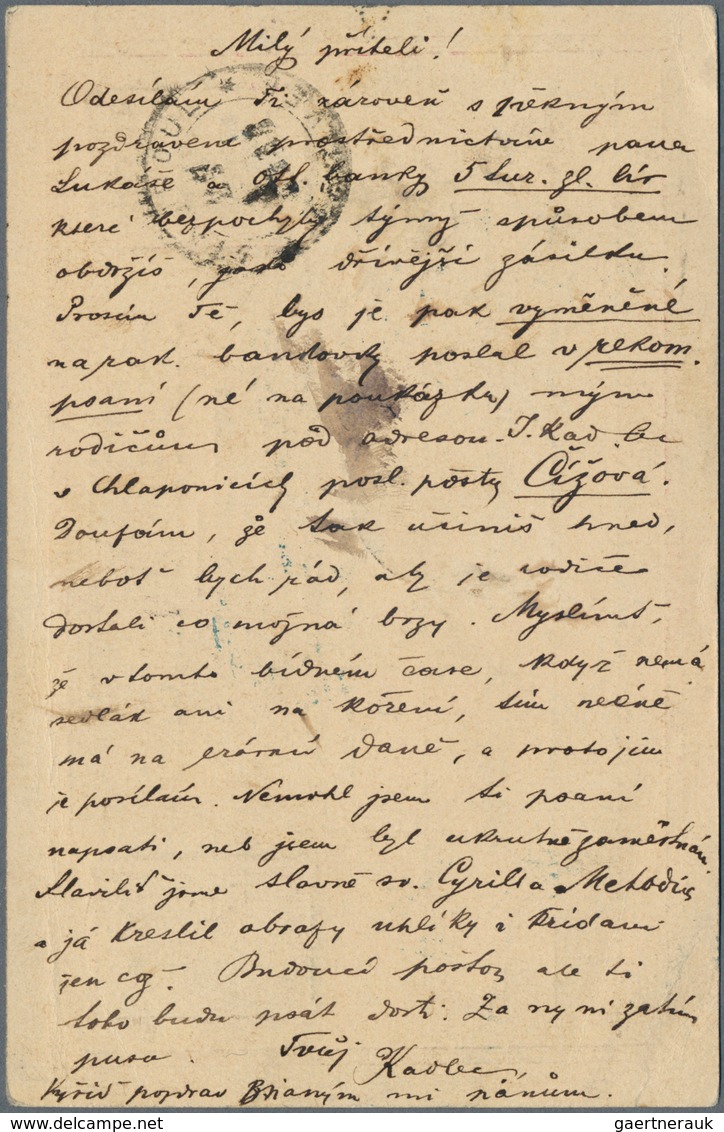 Milý příteli!
Odesílám Ti zároveň s pěkným
pozdravem prostřednictvím pana
Lukáše a Ott. banky 5 tur. zl. lir
které bezpochyby týmž spůsobem
obdržíš, jako dřívější zásilku.
Prosím Tě, bys je pak vyměněné
na rak. bankovky poslal v rekom.
psaní (né na poukázku) mým
rodičům pod adresou J. Kadlec
v Chlaponicích posl. pošty Čížová.
Doufám, že tak učiníš hned,
neboť bych rád, aby je rodiče
dostali co možná brzy. Myslímť,
že v tomto bídném čase, když nemá
sedlák ani na koření, tím méně
má na erární daně, a proto jim
je posílám. Nemohl jsem ti psaní
napsati, neb jsem byl ukrutně zaměstnán.
Slaviliť jsme slavně sv. Cyrilla Methoděje
a já kreslil obrazy uhlíky i křídami
jen což. Budoucí poštou ale ti
toho budu psát dosti. Za nyní zatím
pusu. Tvůj Kadlec
Vyřiď pozdrav známým mi pánům.
gaertnerauk